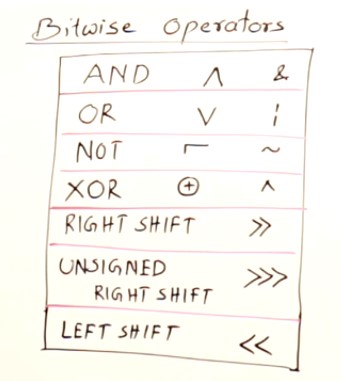 Bitwise Operators
AND ∧ &
OR ∨ ¦
NOT ⌐ ~
XOR ⊕ ^
RIGHT SHIFT >>
UNSIGNED
RIGHT SHIFT >>>
LEFT SHIFT <<